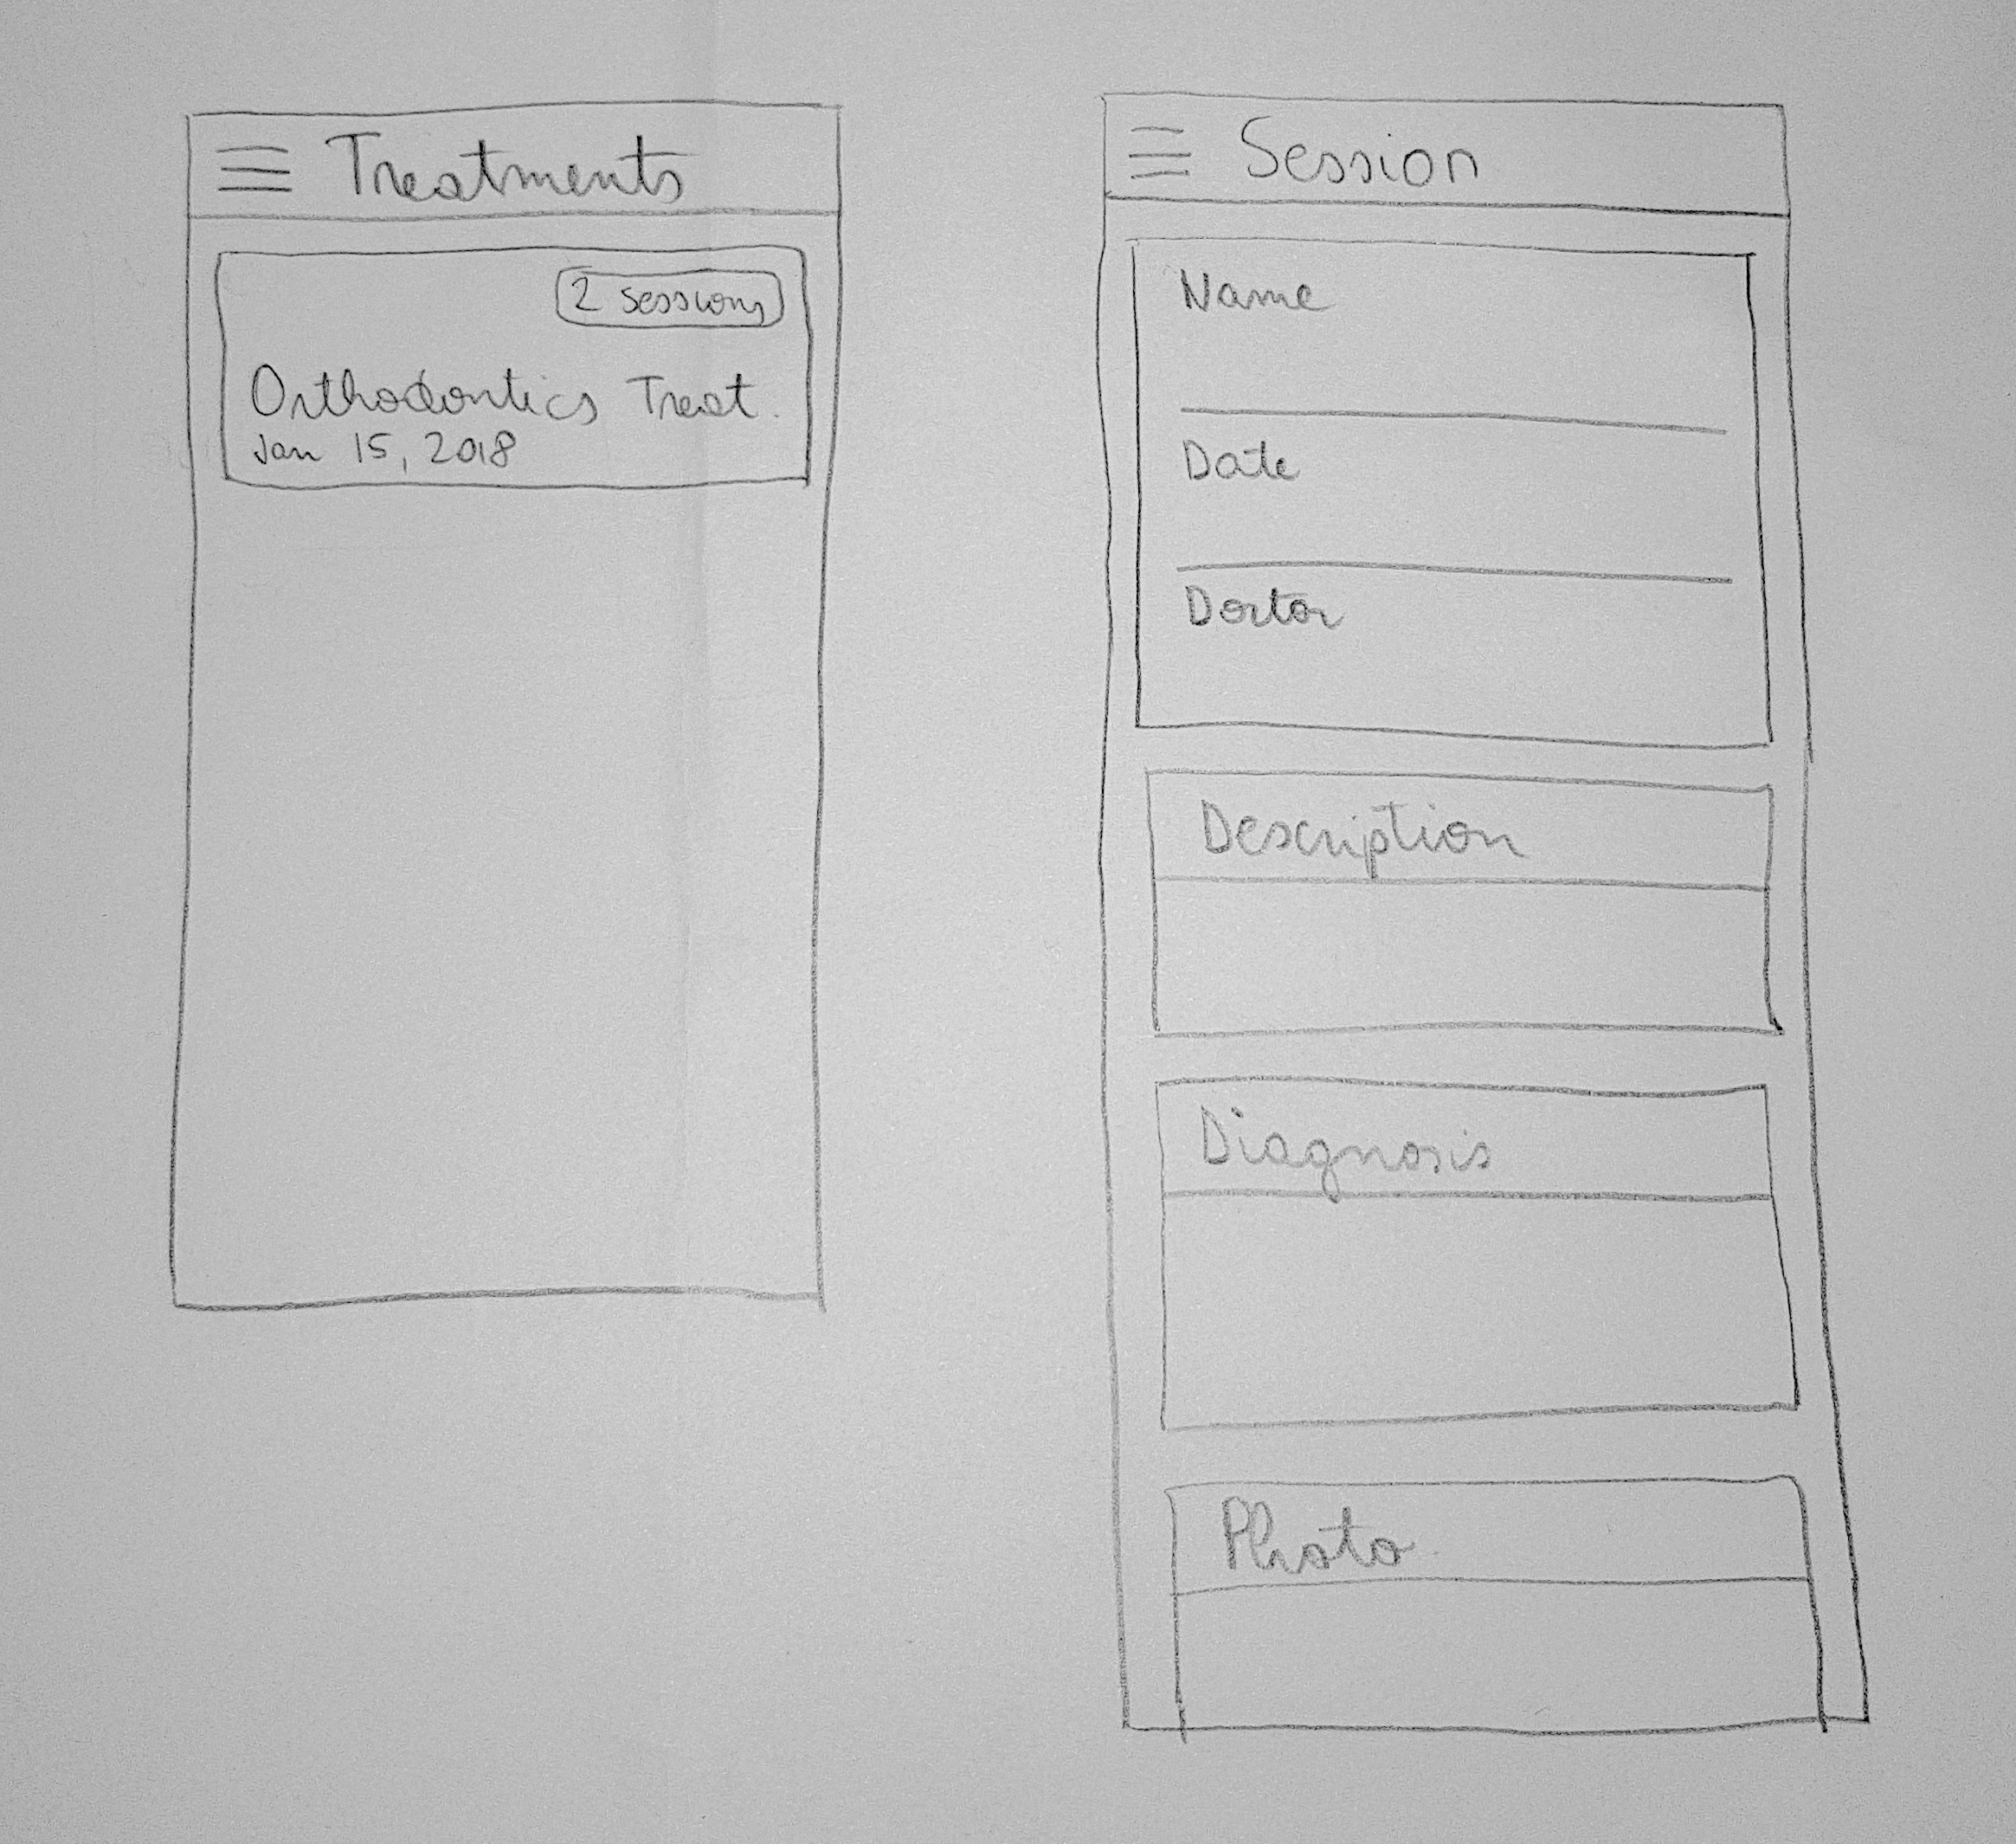 Treatments
2 sessions
Orthodontics Treat.
Jan 15, 2018
Session
Name
Date
Doctor
Description
Diagnosis
Photo